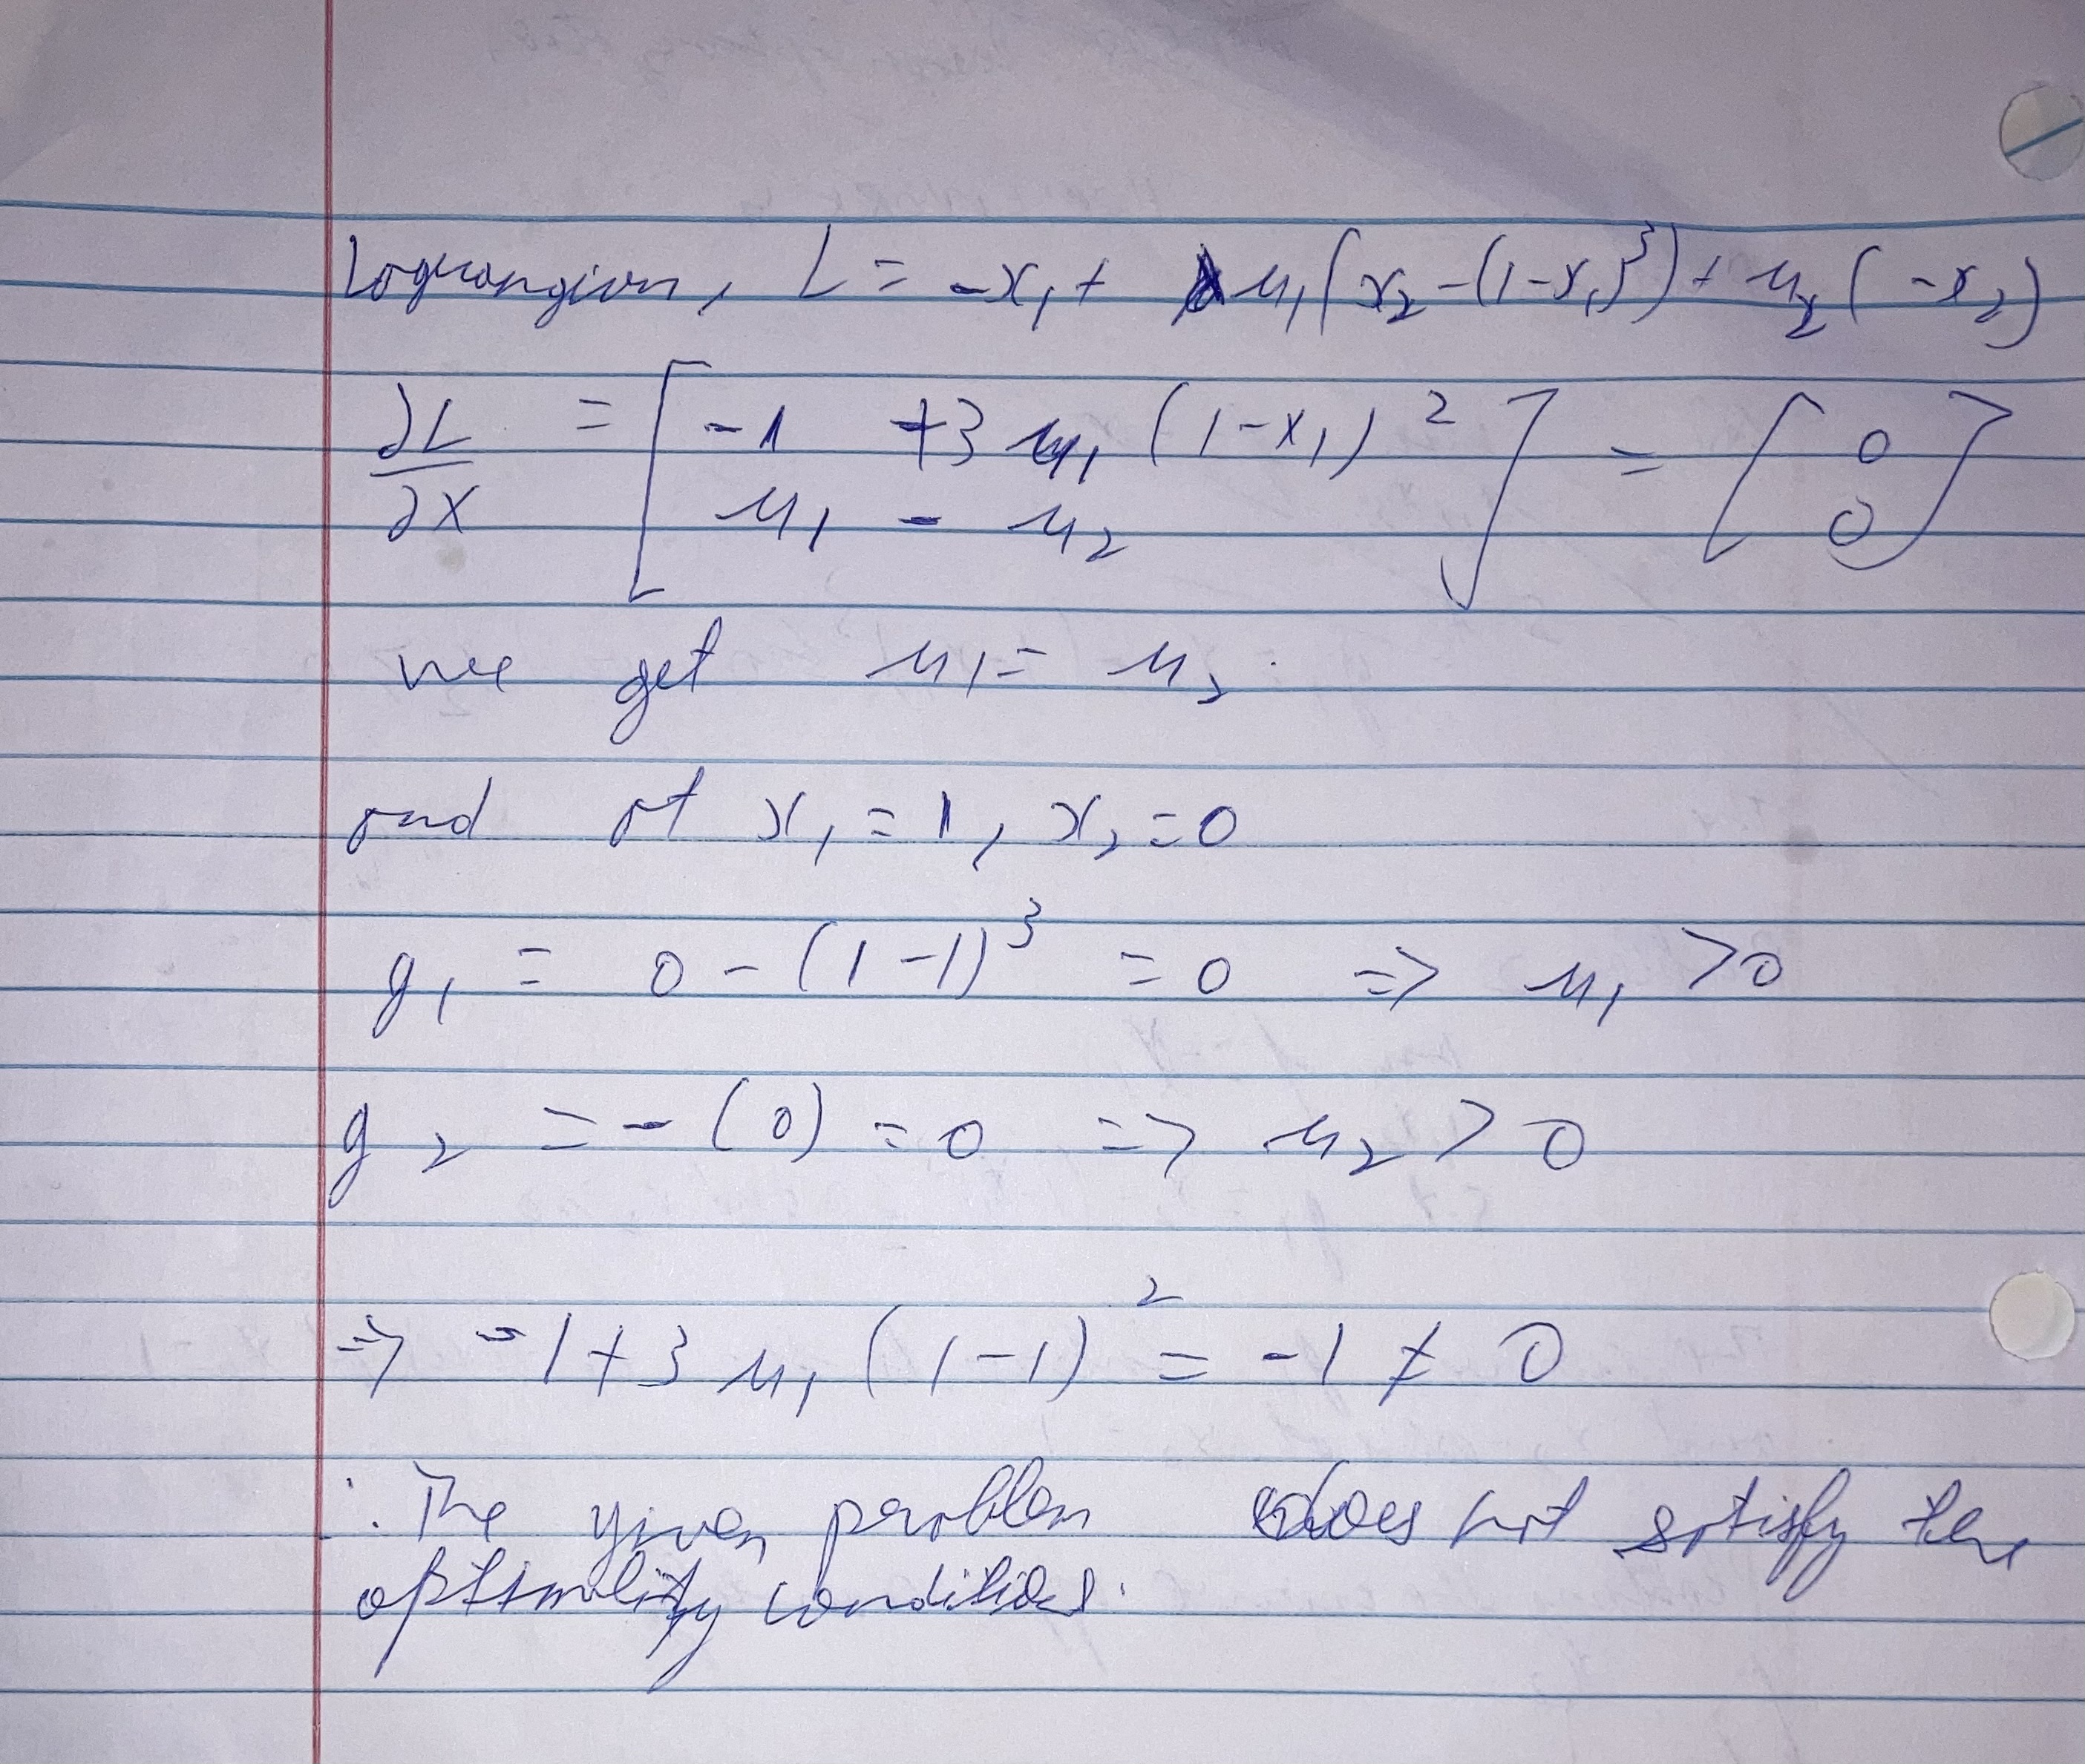 Lagrangian, L = -x₁ + μ₁(x₂-(1-x₁)³) + μ₂(-x₂)
∂L/∂x = [-1 +3μ₁(1-x₁)²; μ₁ - μ₂] = [0; 0]
we get μ₁ = μ₂.
and at x₁ = 1, x₂ = 0
g₁ = 0 - (1-1)³ = 0 => μ₁ > 0
g₂ = -(0) = 0 => μ₂ > 0
=> -1 + 3μ₁(1-1)² = -1 ≠ 0
∴ The given problem does not satisfy the
optimality conditions.